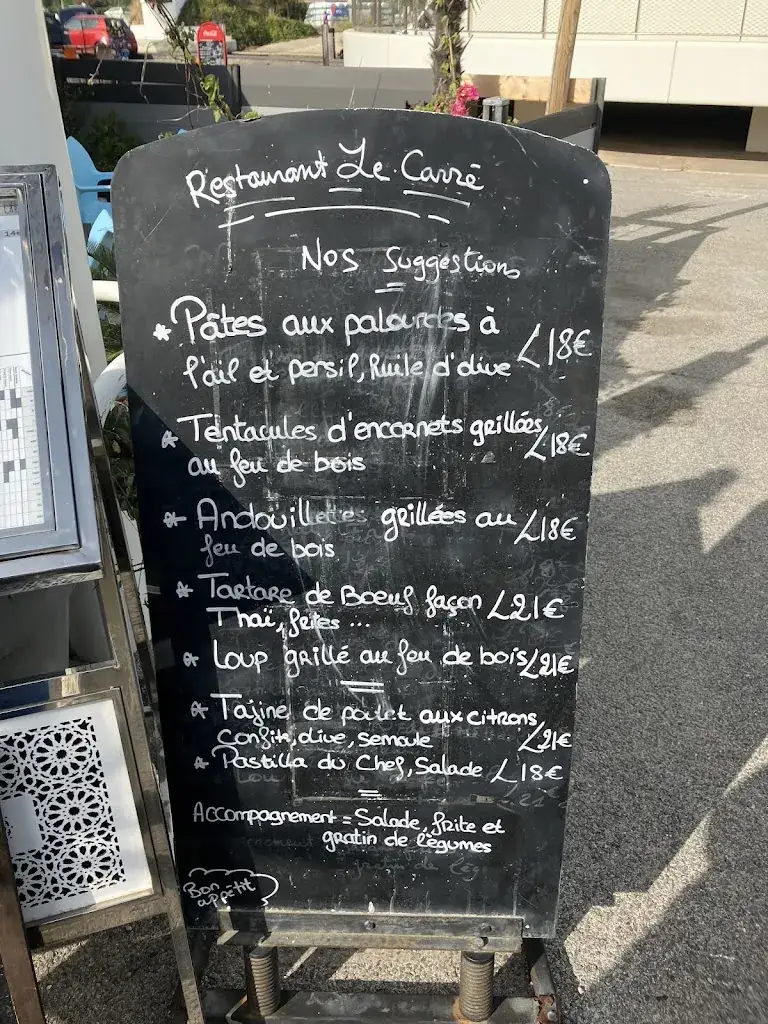 Restaurant Le Carré
Nos suggestions
* Pâtes aux palourdes à
l'ail et persil, huile d'olive ∠18€
* Tentacules d'encornets grillées
au feu de bois ∠18€
* Andouillettes grillées au ∠18€
feu de bois
* Tartare de Boeuf façon ∠21€
Thaï, frites ...
* Loup grillé au feu de bois ∠21€
* Tajine de poulet aux citrons,
confits, olive, semoule ∠21€
* Pastilla du Chef, Salade ∠18€
Accompagnement = Salade, frite et
gratin de légumes
Bon
appétit